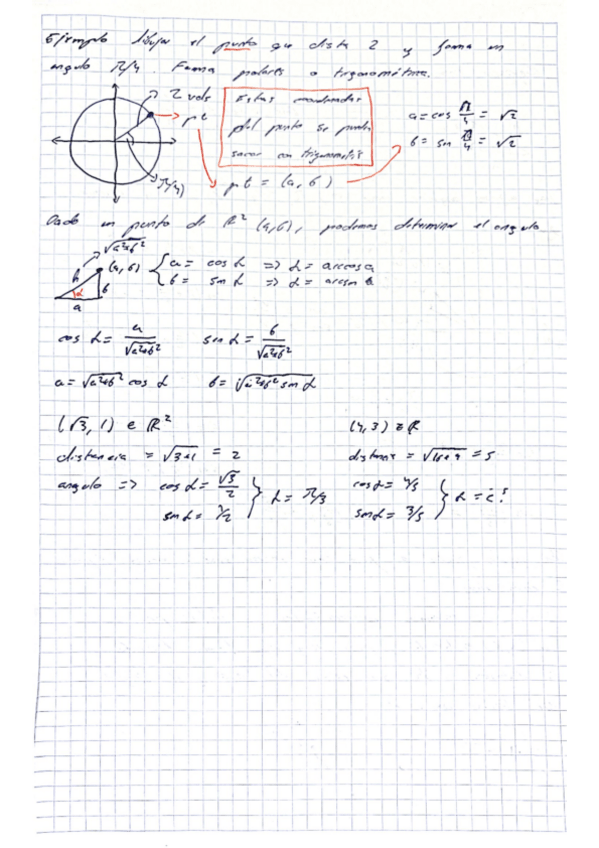 Ejemplo dibujar el punto que dista 2 y forma un
angulo π/4. Forma polares o trigonométrica.
2 uds
pt
π/4)
Estas coordenadas
del punto se pueden
sacar con trigonometría
a = cos π/4 = √2
b = sen π/4 = √2
pt = (a, b)
Dado un punto de R² (a,b), podemos determinar el angulo
√a²+b²
h
(a, b)
α
b
a
a = cos α => α = arccos a
b = sen α => α = arcsen b
cos α = a/√a²+b² sen α = b/√a²+b²
a = √a²+b² cos α b = √a²+b² sen α
(√3, 1) ∈ R² (4,3) ∈ R
distancia = √3+1 = 2 distancia = √16+9 = 5
angulo => cos α = √3/2 } α = π/3 cos α = 4/5 } α = ¿?
sen α = 1/2 sen α = 3/5